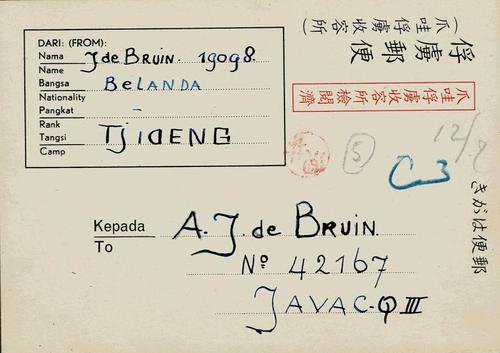 DARI: (FROM):
Nama
Name J de Bruin. 19098.
Bangsa
Nationality BELANDA
Pangkat
Rank -
Tangsi
Camp TJIDENG
(爪哇俘虜收容所)
俘虜郵便
爪哇俘虜收容所檢閱濟
5
C 3
きがは便郵
Kepada
To
A. J. de BRUIN.
Nº 42167
JAVAC-Q III